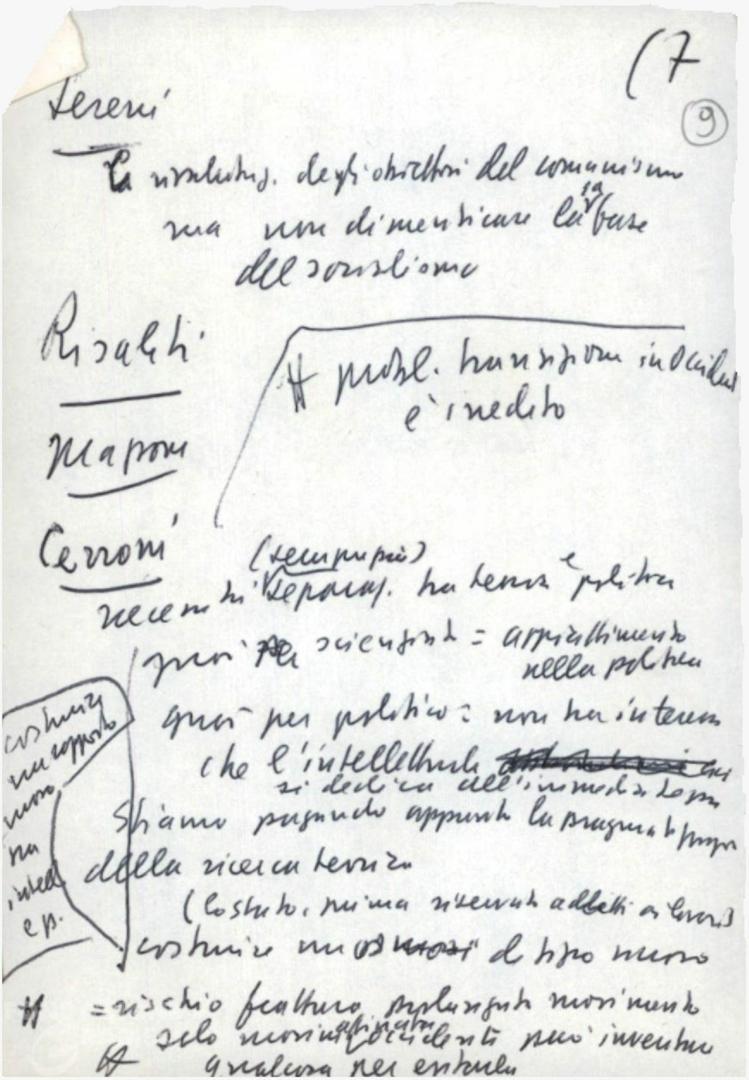 (7
9
Sereni
la rivalutaz. degli obiettivi del comunismo
ma non dimenticare la base
del socialismo
Risaliti
# probl. transizione in Occident
è inedito
Maponi
Cerroni
(sempre più)
necessità separaz. tra teoria e politica
guai scienziato = appiattimento
nella politica
guai per politico = non ha interesse
che l'intellettuale
si dedica all'immediatezza
Stiamo pagando appunto la
della ricerca teorica
(lo stato, prima riservato addetti ai lavori)
costruire un di tipo nuovo
costruire
un rapporto
nuovo
tra
intell
e p.
# = rischio frattura movimento
solo movim. occidente può inventare
# qualcosa per evitarla